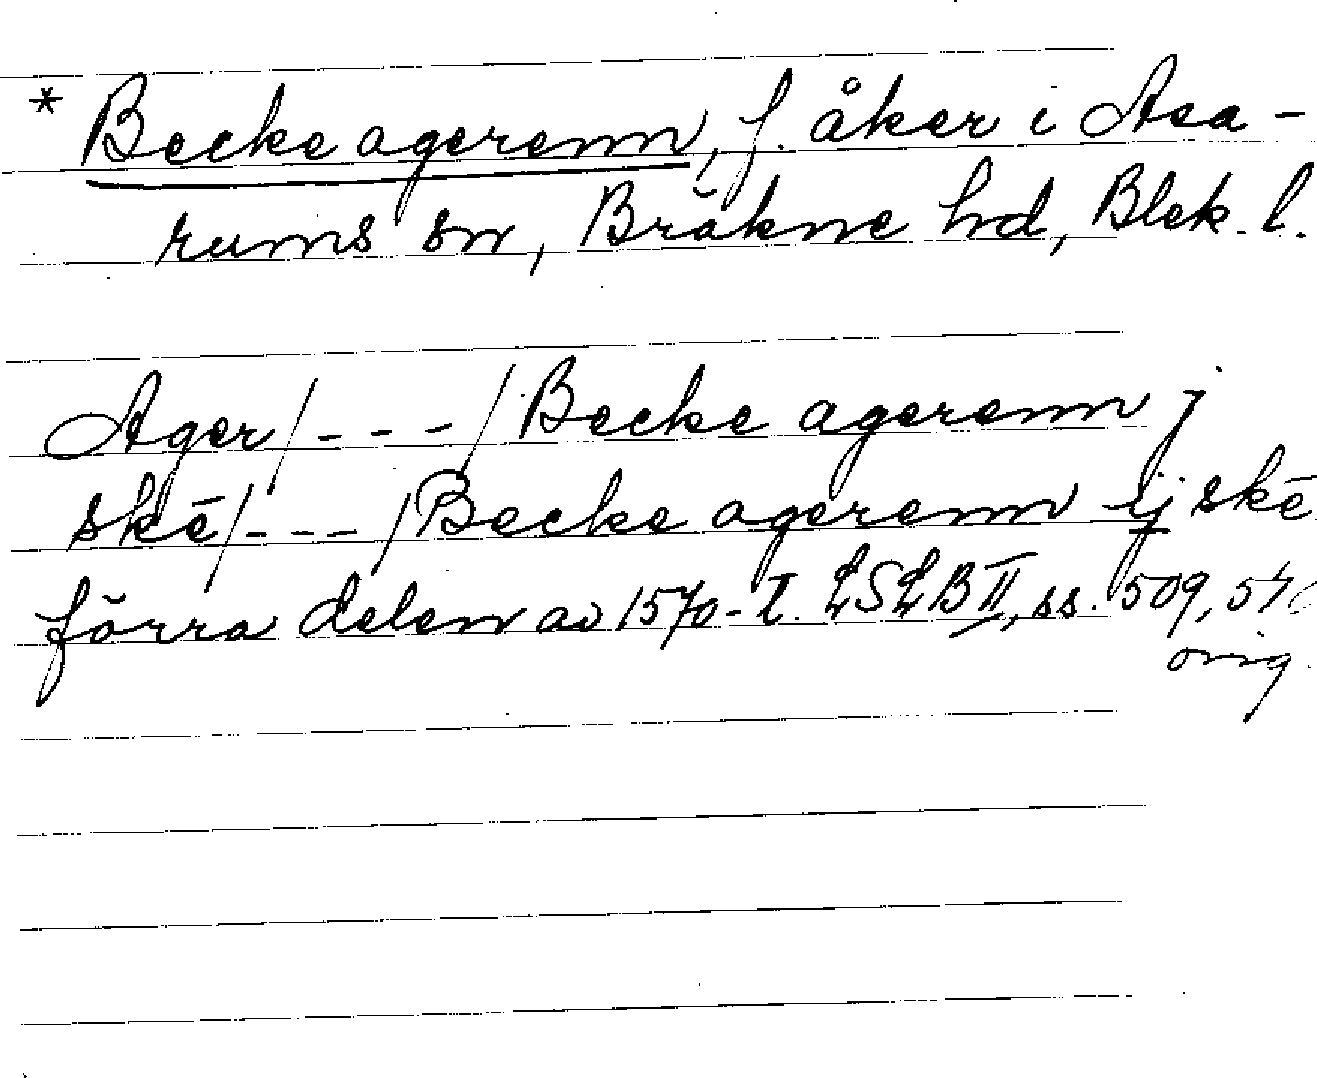 * Becke agerenn, f. åker i Asa-
rums sn, Bräkne hd, Blek. l.
Ager/---/Becke agerenn j
skē/---/Becke agerenn ij skē
förra delen av 1570-t. LSLB II, ss. 509, 
orig.